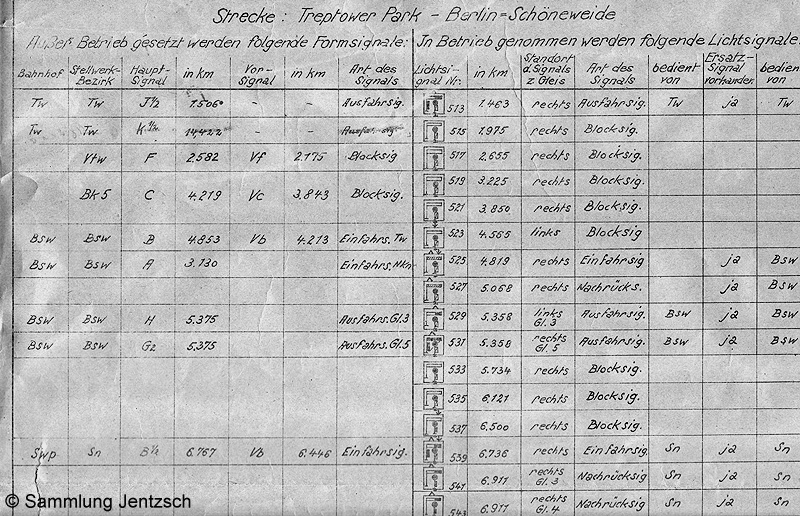 Strecke: Treptower Park - Berlin=Schöneweide
Außer Betrieb gesetzt werden folgende Formsignale: In Betrieb genommen werden folgende Lichtsignale:
Bahnhof Stellwerk- Bezirk Haupt- Signal in km Vor- signal in km Art des Signals Lichtsi- gnal Nr. in km Standort d. Signals z. Gleis Art des Signals bedient von Ersatz- Signal vorhanden bedien von
Tw Tw J½ 1.506 - - Ausfahrsig. 513 1.463 rechts Ausfahrsig. Tw ja Tw
Tw Tw - - 515 1.975 rechts Blocksig.
Vtw F 2.582 Vf 2.175 Blocksig 517 2.655 rechts Blocksig.
519 3.225 rechts Blocksig.
Bk5 C 4.219 Vc 3.843 Blocksig.
521 3.850 rechts Blocksig.
Bsw Bsw B 4.853 Vb 4.213 Einfahrs. Tw 523 4.565 links Blocksig
Bsw Bsw A 3.130 Einfahrs. Nkn 525 4.819 rechts Einfahrsig ja Bsw
527 5.068 rechts Nachrücks. ja Bsw
Bsw Bsw H 5.375 Ausfahrs. Gl.3 529 5.358 links Gl. 3 Ausfahrsig. Bsw ja Bsw
Bsw Bsw G2 5.375 Ausfahrs. Gl.5 531 5.358 rechts Gl. 5 Ausfahrsig. Bsw ja Bsw
533 5.734 rechts Blocksig.
535 6.121 rechts Blocksig.
537 6.500 rechts Blocksig.
Swp Sn B½ 6.767 Vb 6.446 Einfahrsig. 539 6.736 rechts Einfahrsig. Sn ja Sn
541 6.911 rechts Gl. 3 Nachrücksig Sn ja Sn
543 6.911 rechts Gl. 4 Nachrücksig Sn ja Sn
© Sammlung Jentzsch